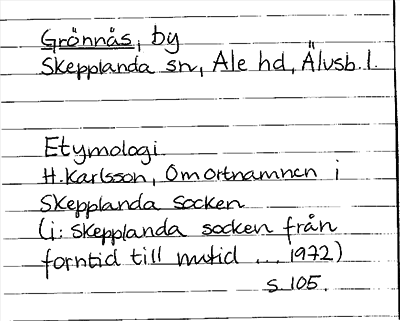 Grönnås, by
Skepplanda sn, Ale hd, Älvsb. l.
Etymologi
H. Karlsson, Om ortnamnen i
Skepplanda socken
(i: Skepplanda socken från
forntid till nutid ... 1972)
s. 105.